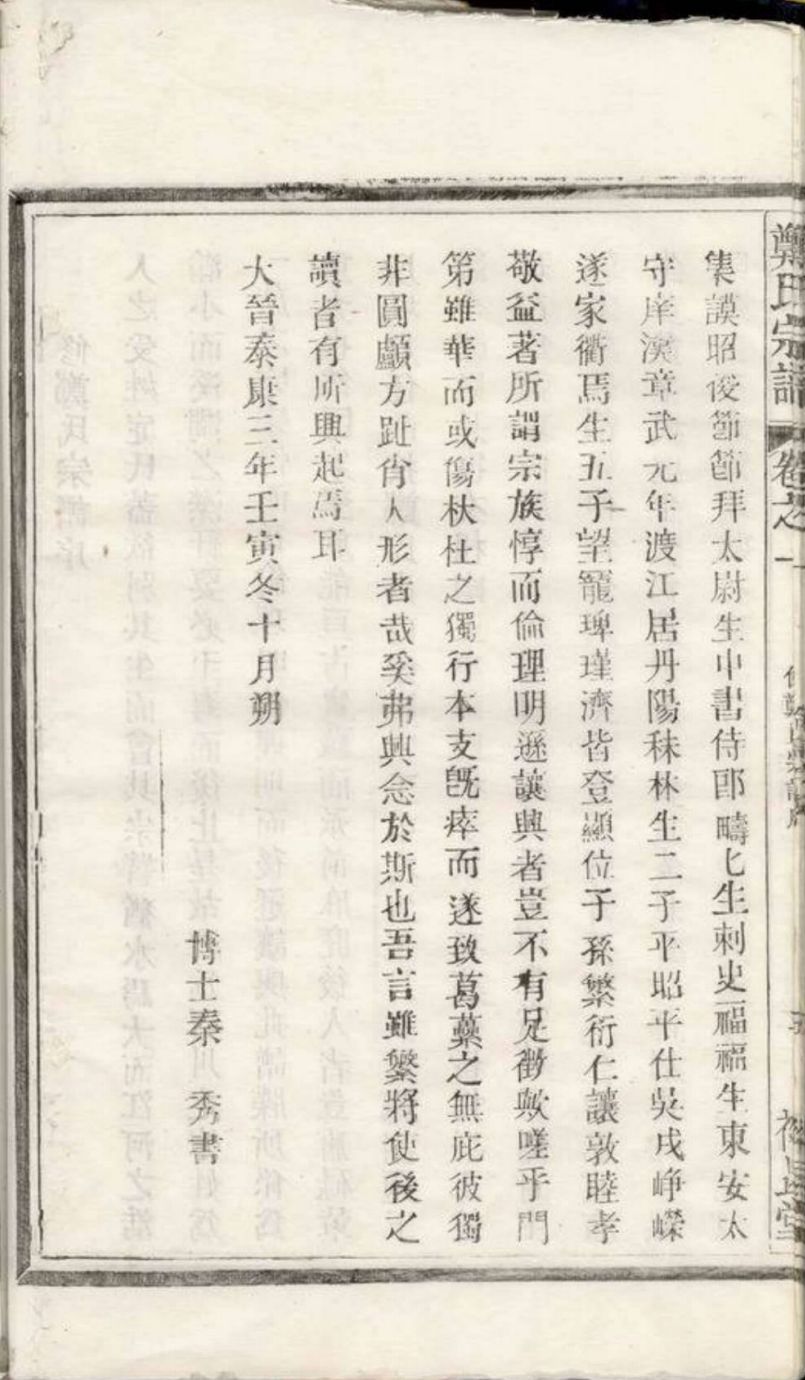 鄭氏宗譜 卷之一 修鄭氏宗譜序 五
集謨昭俊節節拜太尉生中書侍郎疇七生刺史福福生東安太
守庠漢章武元年渡江居丹陽秣林生二子平昭平仕吳戌崢嶸
遂家衢焉生五子望寵琕瑾濟皆登顯位子孫繁衍仁讓敦睦孝
敬益著所謂宗族惇而倫理明遜讓興者豈不有足徵歟嗟乎門
第雖華而或傷杕杜之獨行本支旣瘁而遂致葛藟之無庇彼獨
非圓顱方趾肖人形者哉奚弗興念於斯也吾言雖繁將使後之
讀者有所興起焉耳
大晉泰康三年壬寅冬十月朔
博士秦秀書